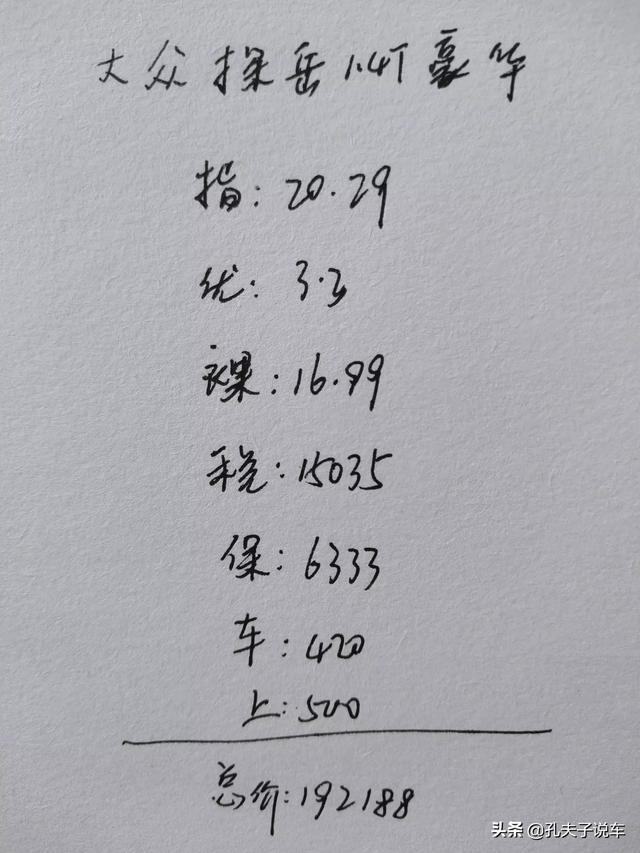 大众探岳1.4T豪华
指:20.29
优:3.3
裸:16.99
税:15035
保:6333
车:420
上:500
总价:192188
头条 @孔夫子说车